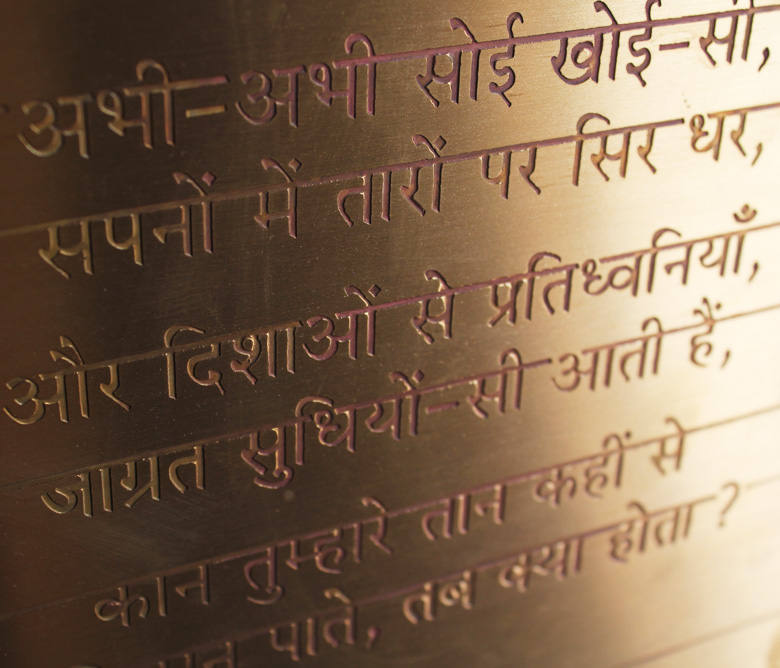 अभी-अभी सोई खोई-सी,
सपनों में तारों पर सिर धर,
और दिशाओं से प्रतिध्वनियाँ,
जाग्रत सुधियों-सी आती हैं,
कान तुम्हारे तान कहीं से
पाते, तब क्या होता ?